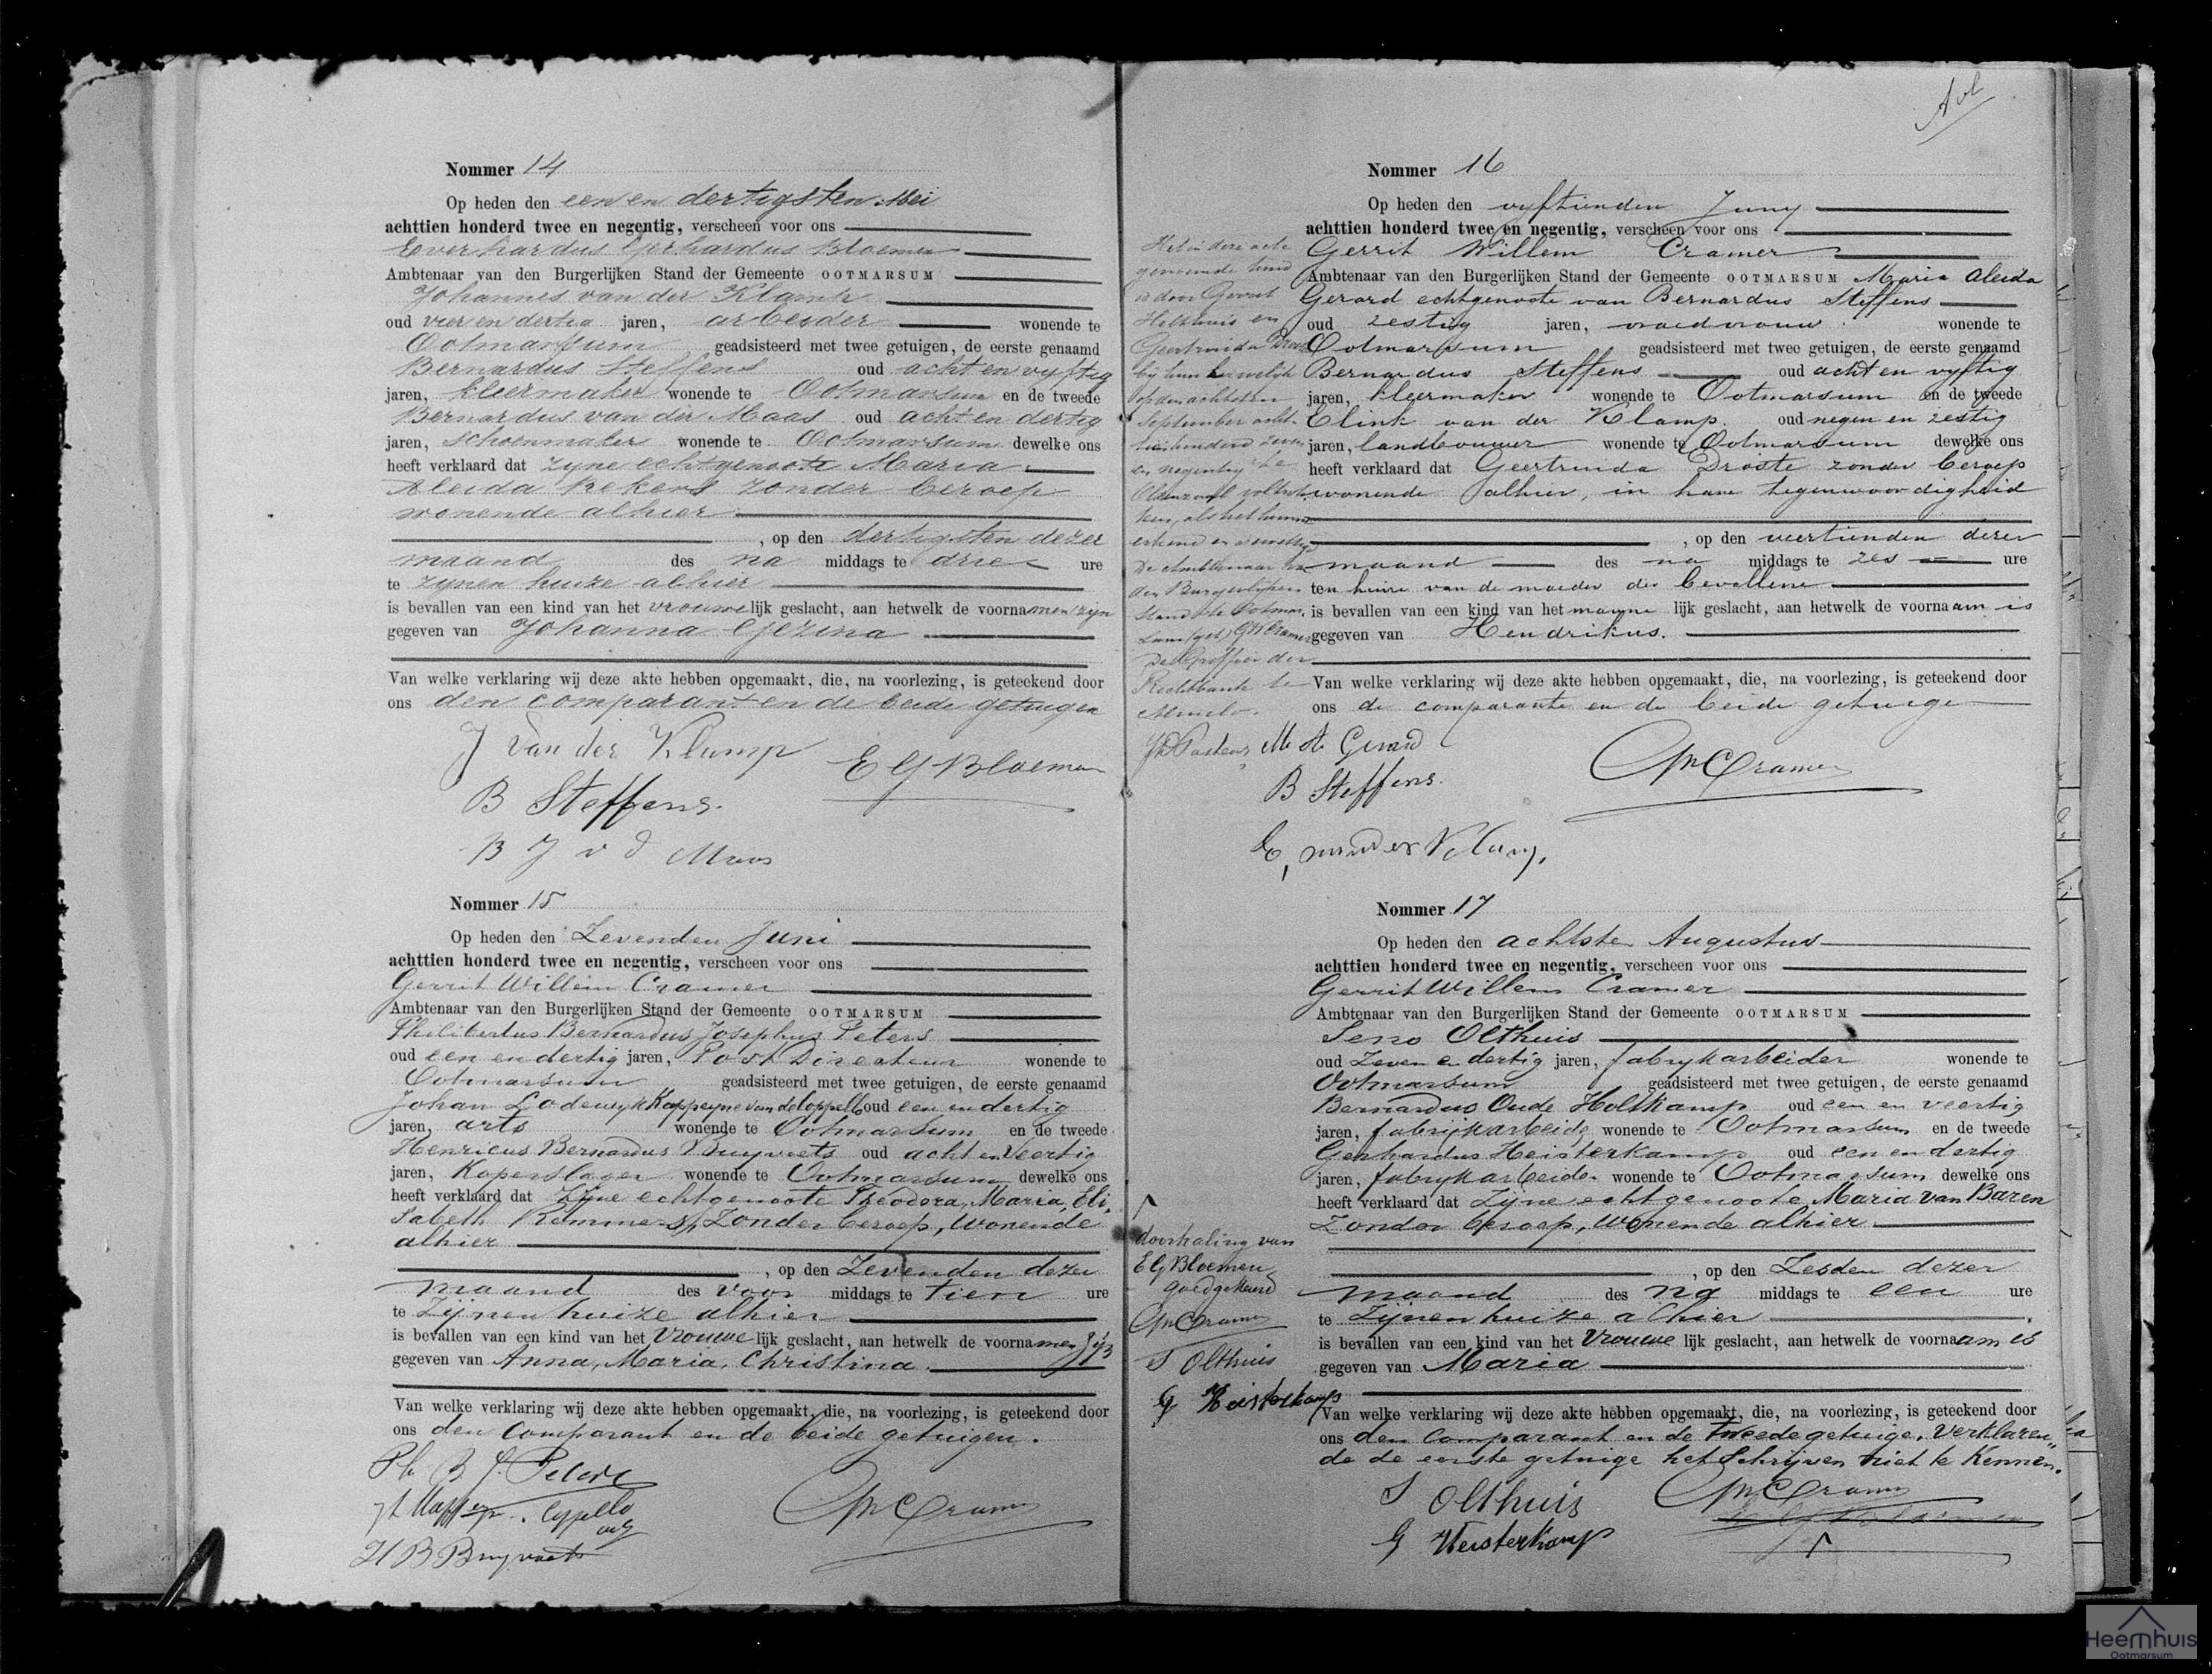 Nommer 14
Op heden den een en dertigsten Mei
achttien honderd twee en negentig, verscheen voor ons
Everhardus Gerhardus Bloemen
Ambtenaar van den Burgerlijken Stand der Gemeente OOTMARSUM
Johannes van der Klamp
oud vier en dertig jaren, arbeider wonende te
Ootmarsum geadsisteerd met twee getuigen, de eerste genaamd
Bernardus Steffens oud acht en vyftig
jaren, kleermaker wonende te Ootmarsum en de tweede
Bernardus van der Maas oud acht en dertig
jaren, schoenmaker wonende te Ootmarsum dewelke ons
heeft verklaard dat zyne echtgenoote Maria
Aleida Rekers zonder beroep
wonende alhier
, op den dertigsten dezer
maand des na middags te drie ure
te zynen huize alhier
is bevallen van een kind van het vrouwelijk geslacht, aan hetwelk de voornamen zyn
gegeven van Johanna Gezina
Van welke verklaring wij deze akte hebben opgemaakt, die, na voorlezing, is geteekend door
ons den comparant en de beide getuigen
J van der Klamp E G Bloemen
B Steffens.
B J v d Maas
Nommer 15
Op heden den Zevenden Juni
achttien honderd twee en negentig, verscheen voor ons
Gerrit Willem Cramer
Ambtenaar van den Burgerlijken Stand der Gemeente OOTMARSUM
Philibertus Bernardus Josephus Peters
oud een en dertig jaren, Post Directeur wonende te
Ootmarsum geadsisteerd met twee getuigen, de eerste genaamd
Johan Lodewyk Kappeyne van de Coppello oud een en dertig
jaren, arts wonende te Ootmarsum en de tweede
Henricus Bernardus Bruyvoets oud acht en Veertig
jaren, Koperslager wonende te Ootmarsum dewelke ons
heeft verklaard dat Zijne echtgenoote Theodora, Maria, Eli,
sabeth Rammers, Zonder beroep, wonende
alhier
, op den Zevenden dezer
maand des voor middags te tien ure
te Zijnen huize alhier
is bevallen van een kind van het Vrouwe lijk geslacht, aan hetwelk de voornamen zijn
gegeven van Anna, Maria, Christina
Van welke verklaring wij deze akte hebben opgemaakt, die, na voorlezing, is geteekend door
ons den Comparant en de beide getuigen.
Ph B J. Peters
GW Cramer
H B Bruyvoets
Nommer 16
Op heden den vyftienden Juny
achttien honderd twee en negentig, verscheen voor ons
Gerrit Willem Cramer
Ambtenaar van den Burgerlijken Stand der Gemeente OOTMARSUM Maria Aleida
Gerard echtgenoote van Bernardus Steffens
oud zestig jaren, vroedvrouw wonende te
Ootmarsum geadsisteerd met twee getuigen, de eerste genaamd
Bernardus Steffens oud acht en vyftig
jaren, kleermaker wonende te Ootmarsum en de tweede
Elink van der Klamp oud negen en zestig
jaren, landbouwer wonende te Ootmarsum dewelke ons
heeft verklaard dat Geertruida Droste zonder beroep
wonende alhier, in hare tegenwoordigheid
, op den veertienden dezer
maand des na middags te zes ure
ten huize van de moeder der bevallene
is bevallen van een kind van het manne lijk geslacht, aan hetwelk de voornaam is
gegeven van Hendrikus.
Van welke verklaring wij deze akte hebben opgemaakt, die, na voorlezing, is geteekend door
ons de comparante en de beide getuige
M A Gerard GW Cramer
B Steffens.
E, van der Klamp,
Het in deze acte
genoemde kind
is door Gerrit
Holthuis en
Geertruida Droste
bij hun huwelijk
op den achtsten
September acht-
tienhonderd zeven
en negentig te
Oldenzaal voltrok-
ken, als het hunne
erkend en gewettigd
De Ambtenaar van
den Burgerlijken
Stand te Ootmar-
sum (get) GW Cramer
De Griffier der
Rechtbank te
Almelo.
Nommer 17
Op heden den achtste Augustus
achttien honderd twee en negentig, verscheen voor ons
Gerrit Willem Cramer
Ambtenaar van den Burgerlijken Stand der Gemeente OOTMARSUM
Seno Olthuis
oud Zeven en dertig jaren, fabrykarbeider wonende te
Ootmarsum geadsisteerd met twee getuigen, de eerste genaamd
Bernardus Oude Holtkamp oud een en veertig
jaren, fabrijkarbeider wonende te Ootmarsum en de tweede
Gerhardus Heisterkamp oud een en dertig
jaren, fabrykarbeider wonende te Ootmarsum dewelke ons
heeft verklaard dat Zijne echtgenoote Maria van Baren
Zonder beroep, wonende alhier
, op den Zesden dezer
maand des na middags te een ure
te Zijnen huize alhier
is bevallen van een kind van het Vrouwe lijk geslacht, aan hetwelk de voornaam is
gegeven van Maria
Van welke verklaring wij deze akte hebben opgemaakt, die, na voorlezing, is geteekend door
ons den Comparant en de tweede getuige, Verklaren„
de de eerste getuige het Schrijven niet te Kennen.
S Olthuis GW Cramer
G Heisterkamp
doorhaling van
E G Bloemen
goedgekeurd
GW Cramer
S Olthuis
G Heisterkamp
Heemhuis
Ootmarsum